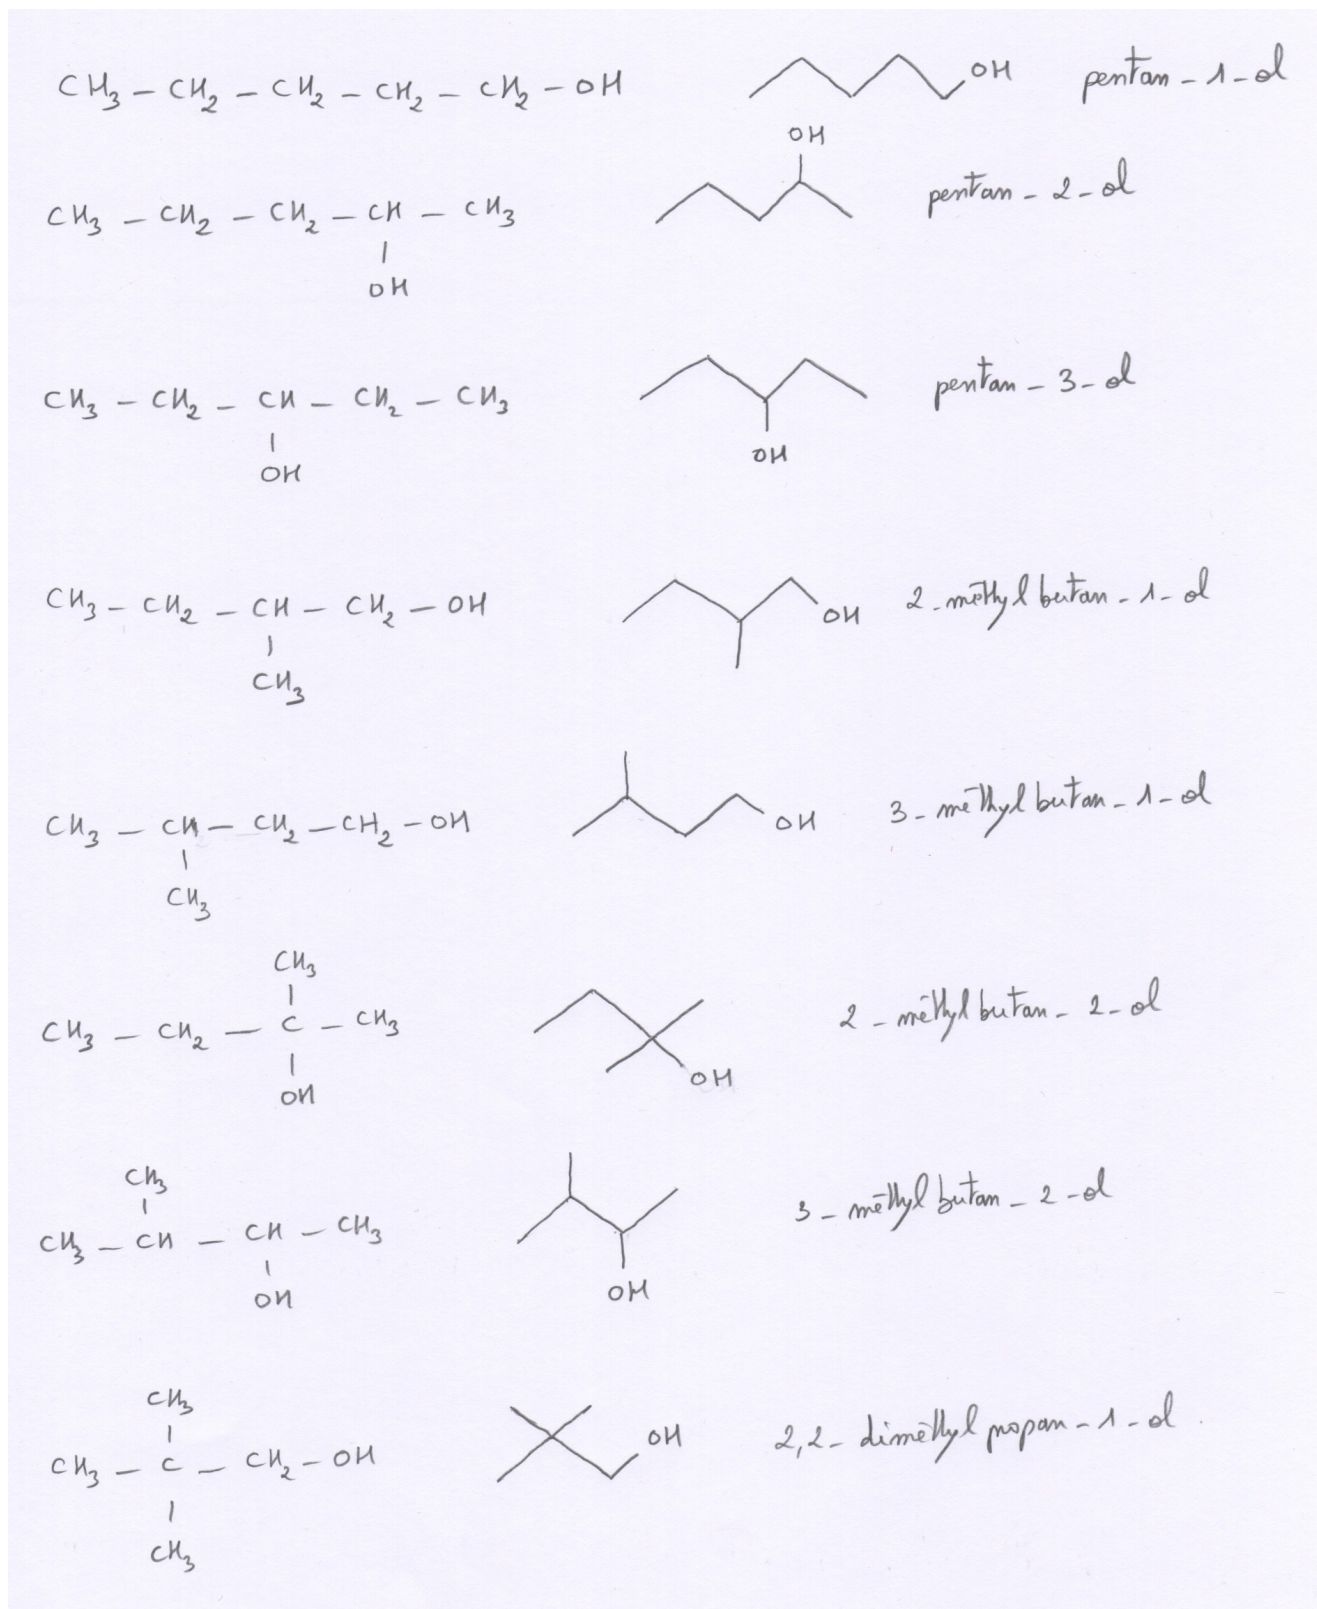 CH₃ – CH₂ – CH₂ – CH₂ – CH₂ – OH OH pentan – 1 – ol
OH
CH₃ – CH₂ – CH₂ – CH – CH₃ pentan – 2 – ol
OH
CH₃ – CH₂ – CH – CH₂ – CH₃ pentan – 3 – ol
OH OH
CH₃ – CH₂ – CH – CH₂ – OH OH 2 – méthyl butan – 1 – ol
CH₃
CH₃ – CH – CH₂ – CH₂ – OH OH 3 – méthyl butan – 1 – ol
CH₃
CH₃
CH₃ – CH₂ – C – CH₃ 2 – méthyl butan – 2 – ol
OH OH
CH₃
CH₃ – CH – CH – CH₃ 3 – méthyl butan – 2 – ol
OH OH
CH₃
CH₃ – C – CH₂ – OH OH 2,2 – diméthyl propan – 1 – ol
CH₃